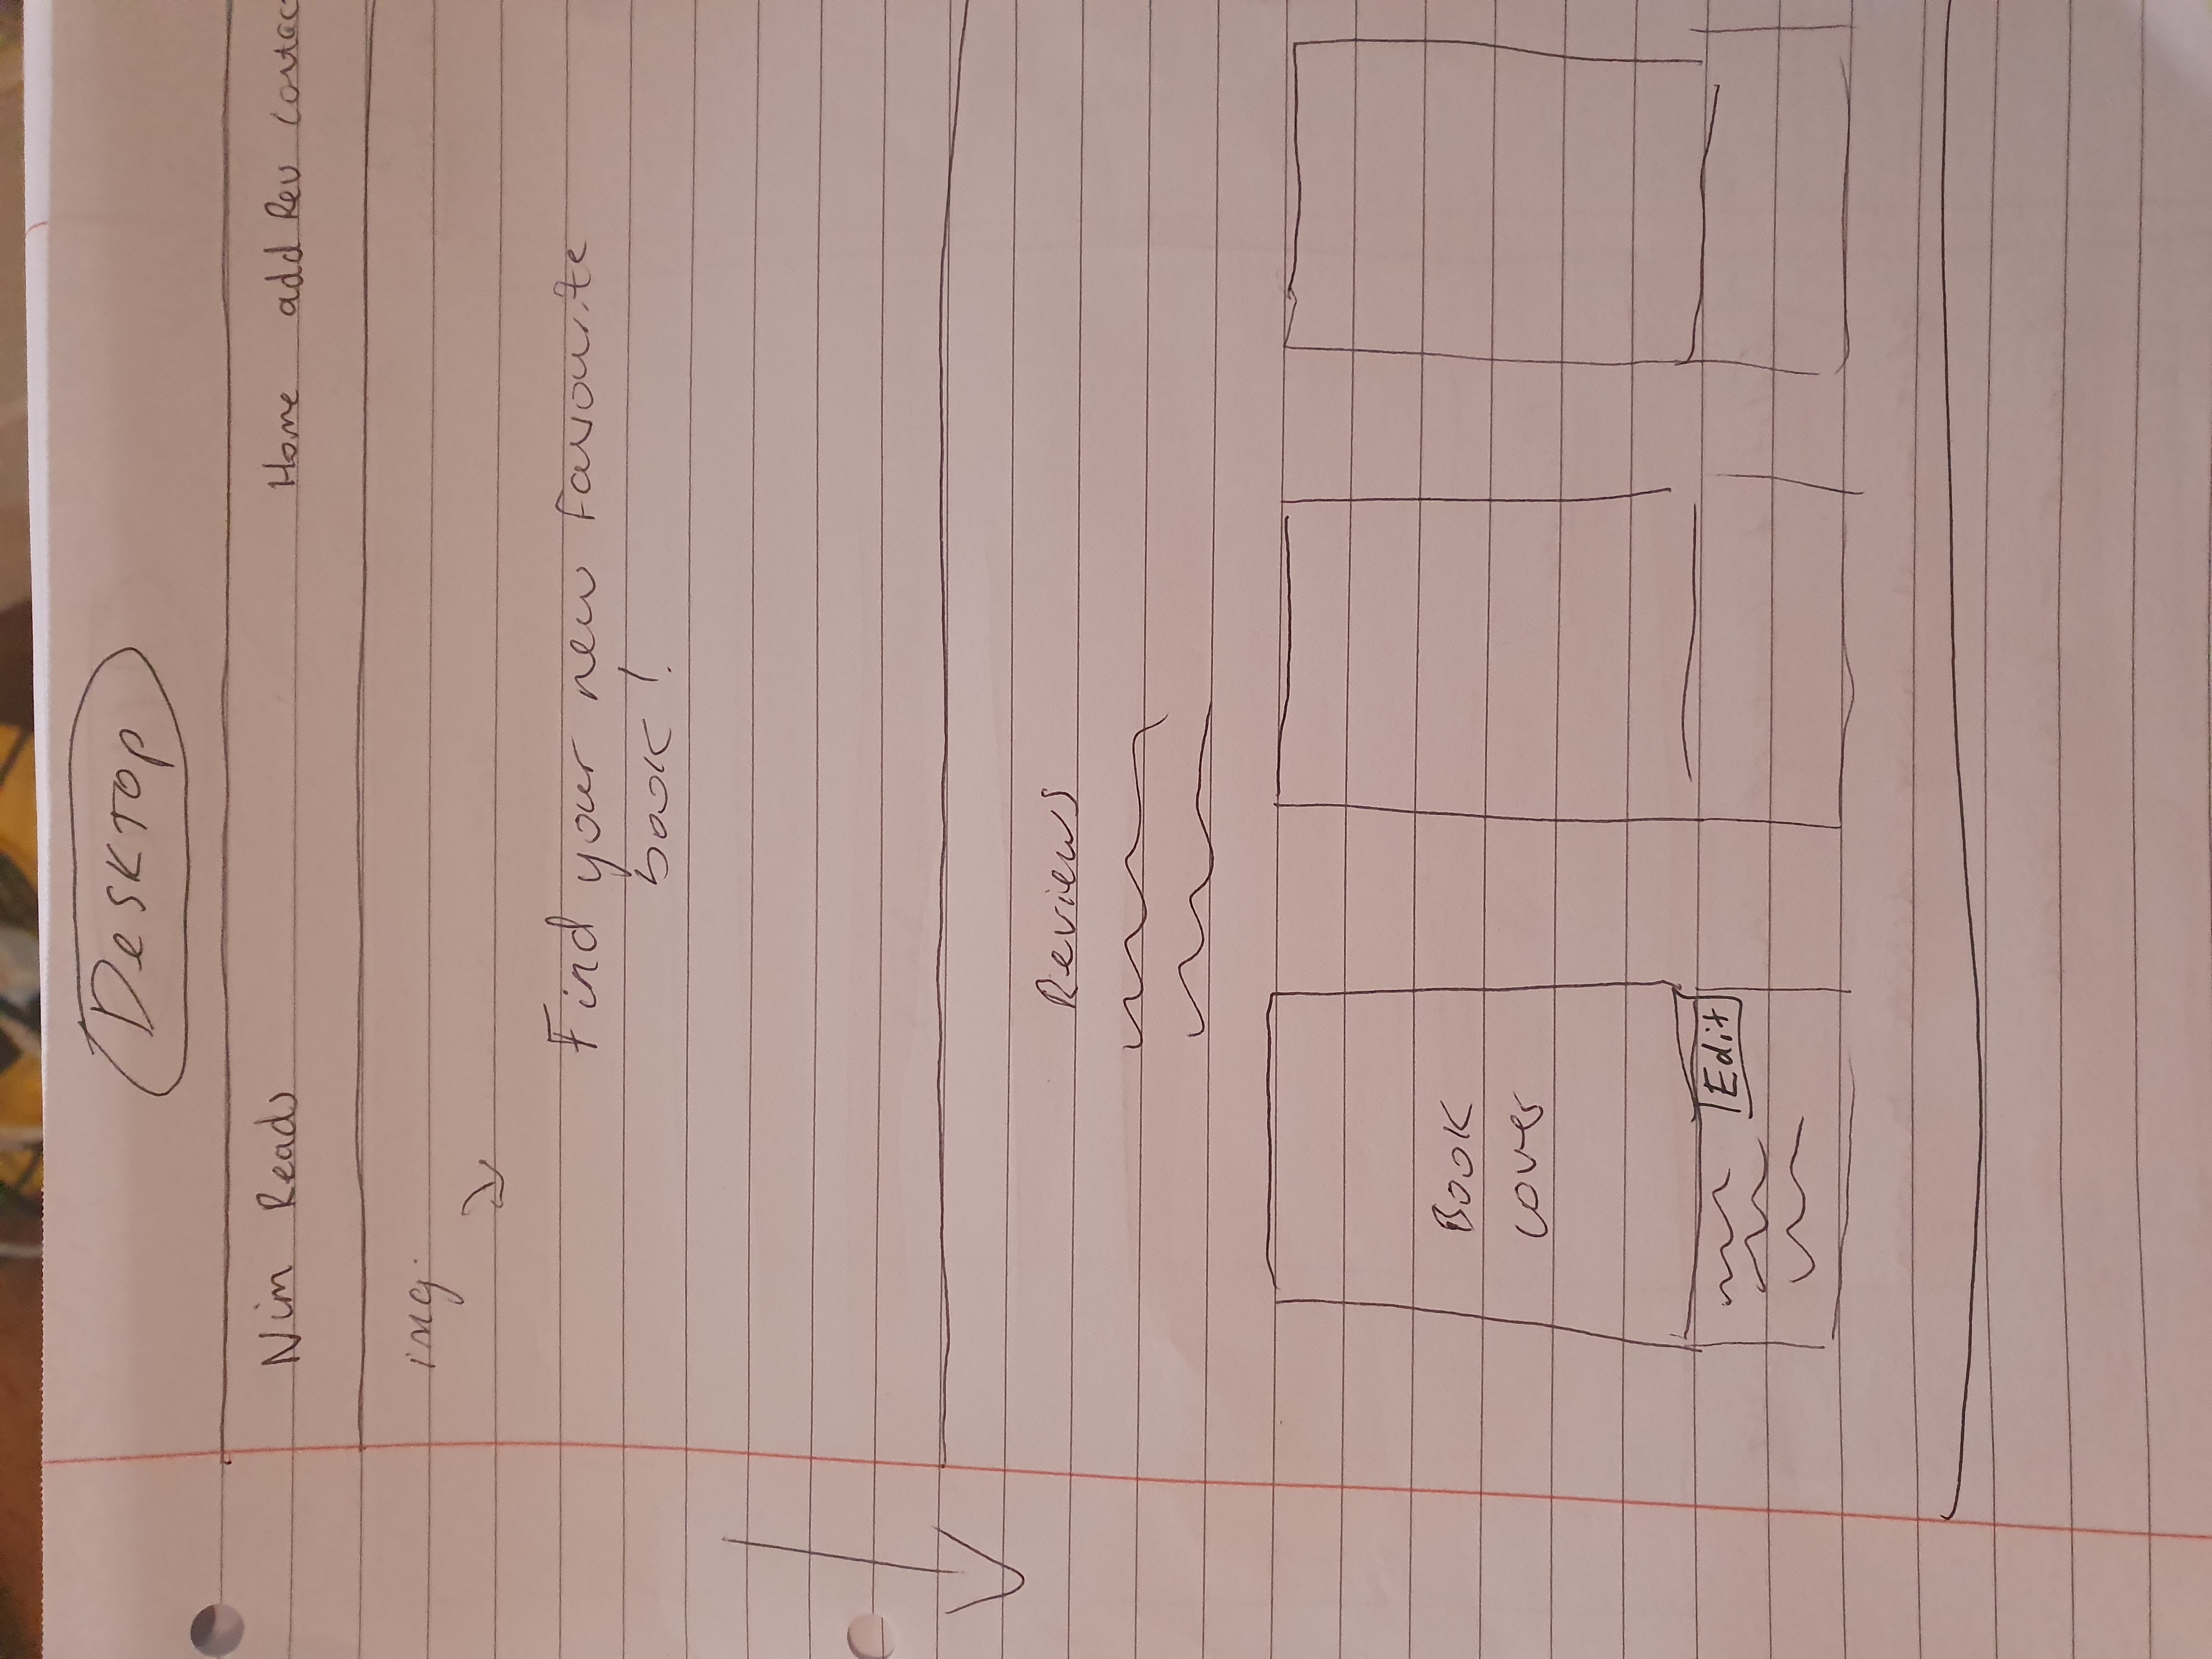 Desktop
Nim Reads
Home add Rev Contac
img.
Find your new favourite
book!
Reviews
Book
cover
Edit